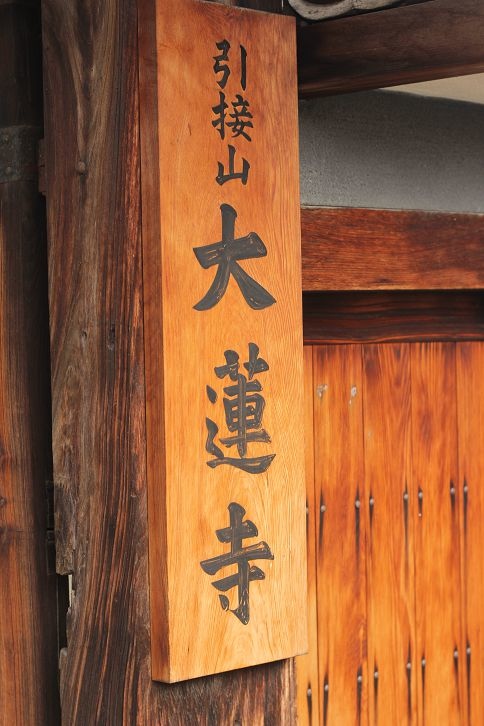 引接山
大蓮寺